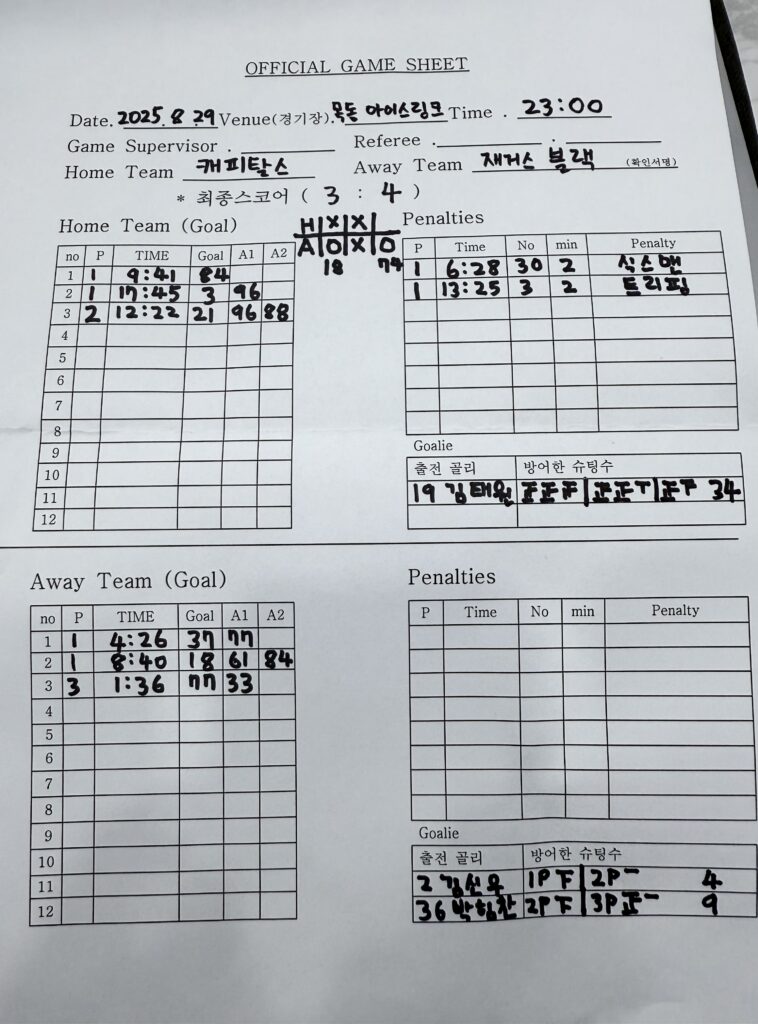 OFFICIAL GAME SHEET
Date. 2025. 8. 29 Venue(경기장). 목동 아이스링크 Time . 23:00
Game Supervisor . Referee . .
Home Team 캐피탈스 Away Team 재거스 블랙 (확인서명)
* 최종스코어 ( 3 : 4 )
Home Team (Goal)
H X X
A O X O
18 74
no P TIME Goal A1 A2
1 1 9:41 84
2 1 17:45 3 96
3 2 12:22 21 96 88
4
5
6
7
8
9
10
11
12
Penalties
P Time No min Penalty
1 6:28 30 2 식스맨
1 13:25 3 2 트리핑
Goalie
출전 골리 방어한 슈팅수
19 김태원 正正F | 正正T | 正F 34
Away Team (Goal)
no P TIME Goal A1 A2
1 1 4:26 37 77
2 1 8:40 18 61 84
3 3 1:36 77 33
4
5
6
7
8
9
10
11
12
Penalties
P Time No min Penalty
Goalie
출전 골리 방어한 슈팅수
2 1P F | 2P 一 4
36 2P F | 3P 正一 9